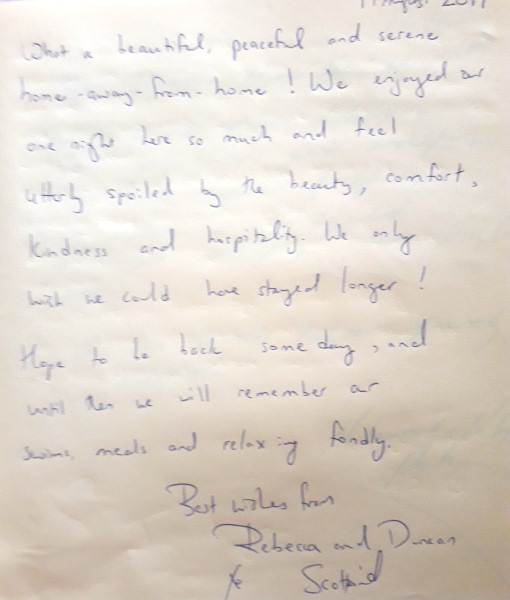 August 2017
What a beautiful, peaceful and serene
home-away-from-home! We enjoyed our
one night here so much and feel
utterly spoiled by the beauty, comfort,
kindness and hospitality. We only
wish we could have stayed longer!
Hope to be back some day, and
until then we will remember our
swims, meals and relaxing fondly.
Best wishes from
Rebecca and Duncan
Scotland